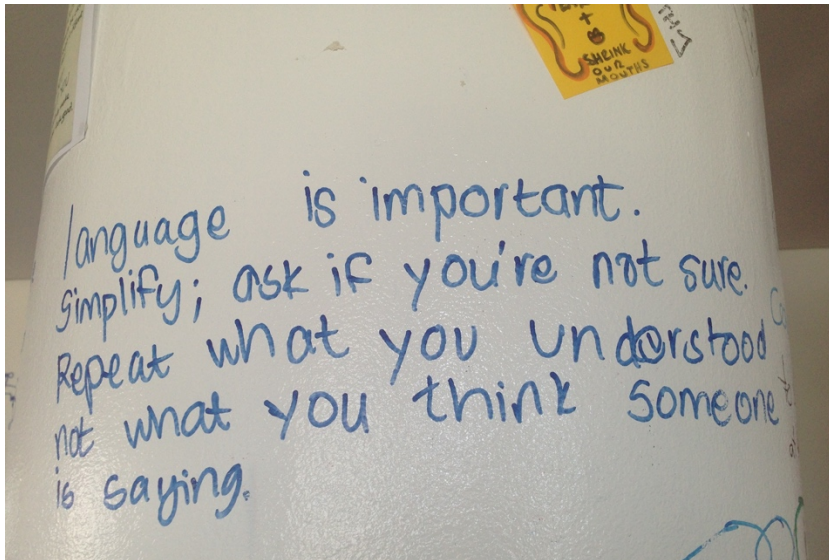 +
SHRINK
OUR
MOUTHS
language is important.
Simplify; ask if you're not sure.
Repeat what you understood
not what you think someone
is saying.